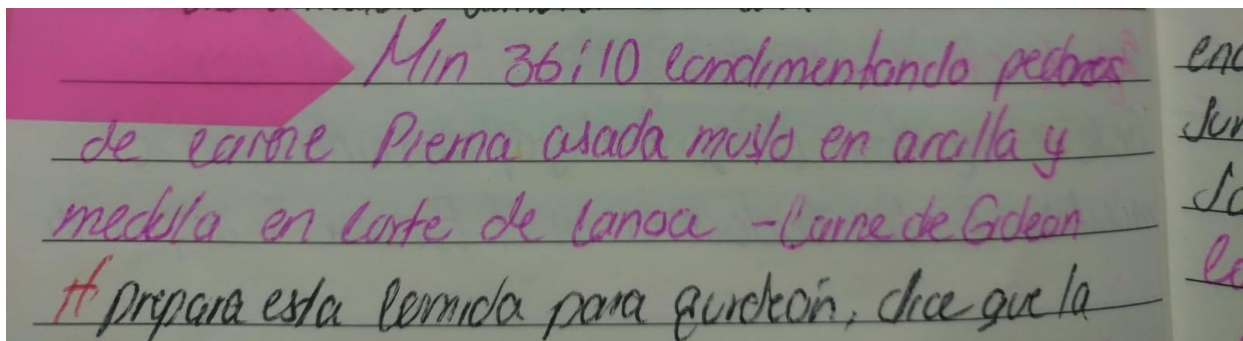 Min 36:10 condimentando
de carne Pierna asada muslo en arcilla y
medula en corte de canoa - Carne de Gideon
# prepara esta comida para , dice que la
enc